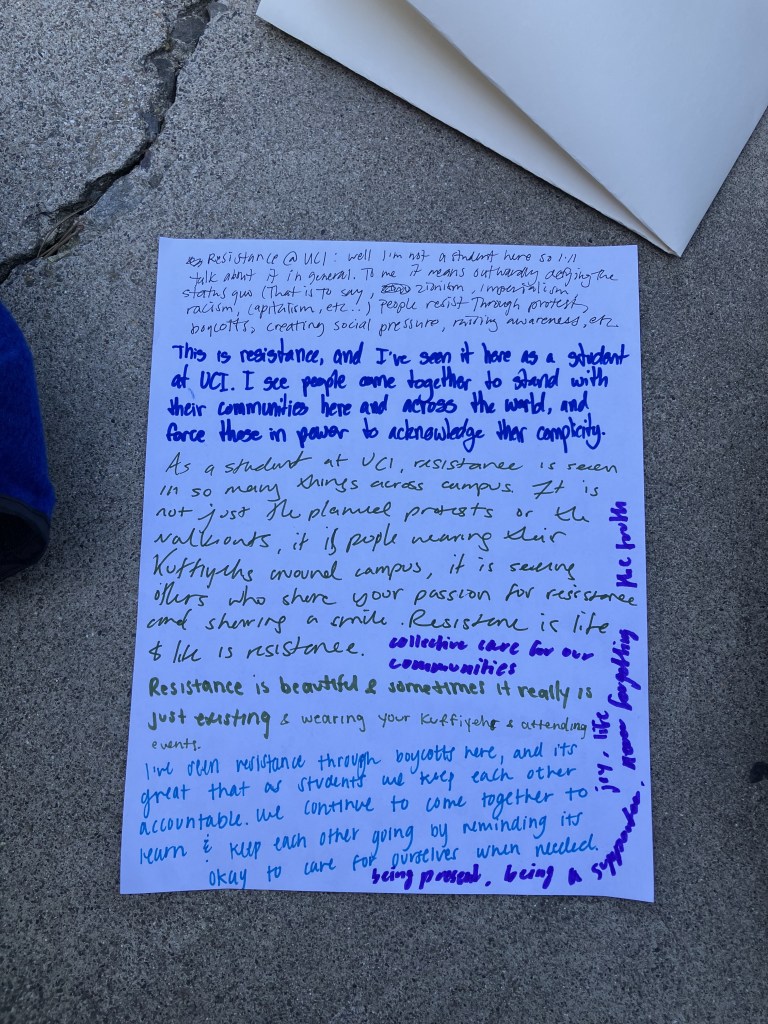 Resistance @ UCI: well I'm not a student here so I'll
talk about it in general. To me it means outwardly defying the
status quo (That is to say, zionism, imperialism
racism, capitalism, etc..) People resist through protest,
boycotts, creating social pressure, raising awareness, etc
This is resistance, and I've seen it here as a student
at UCI. I see people come together to stand with
their communities here and across the world, and
force those in power to acknowledge their complicity.
As a student at UCI, resistance is seen
in so many things across campus. It is
not just the planned protests or the
walkouts, it is people wearing their
Kuffiyehs around campus, it is seeing
others who share your passion for resistance
and sharing a smile. Resistance is life
& life is resistance.
collective care for our
communities
Resistance is beautiful & sometimes it really is
just existing & wearing your Kuffiyehs & attending
events.
I've seen resistance through boycotts here, and its
great that as students we keep each other
accountable. We continue to come together to
learn & keep each other going by reminding its
okay to care for ourselves when needed.
being present, being a supporter,
joy, life
never forgetting the truth